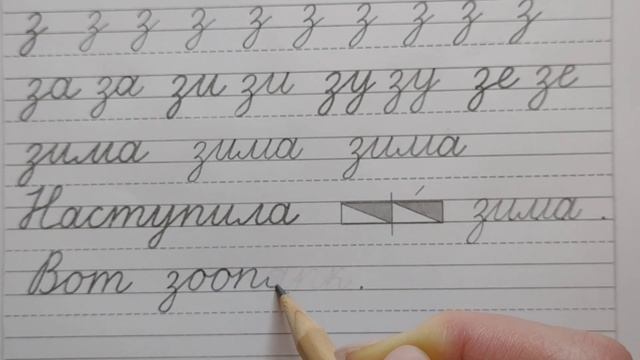 з з з з з з з з з з
за за зи зи зу зу зе зе
зима зима зима
Наступила зима.
Вот зооп